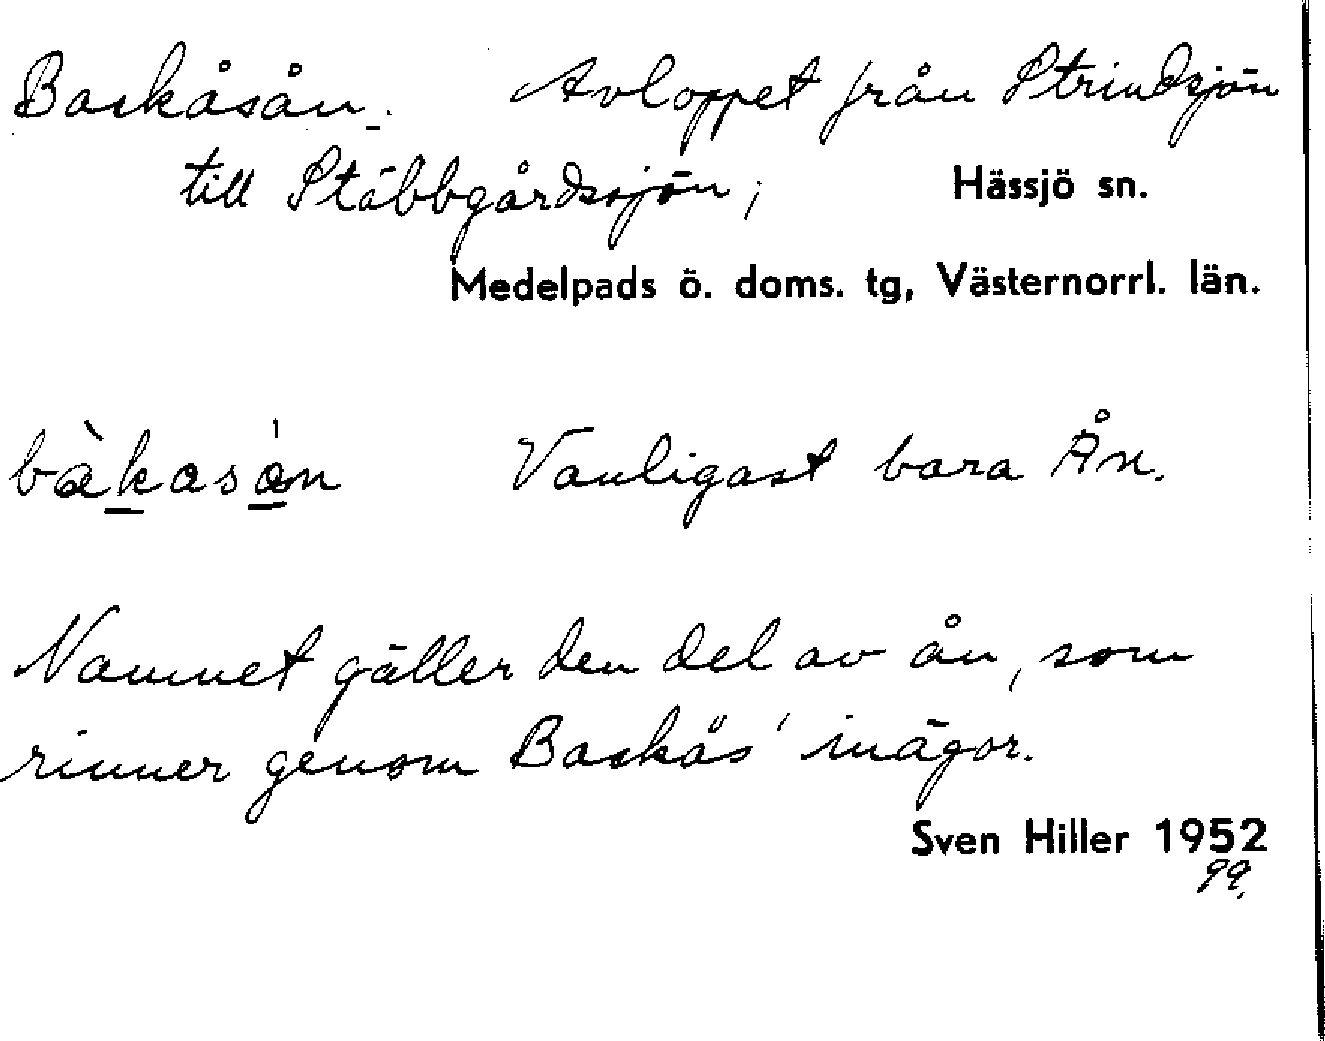 Backåsån. Avloppet från Strindsjön
till Stäbbgårdssjön; Hässjö sn.
Medelpads ö. doms. tg, Västernorrl. län.
bàkasån Vanligast bara Ån.
Namnet gäller den del av ån, som
rinner genom Backås' inägor.
Sven Hiller 1952
99.